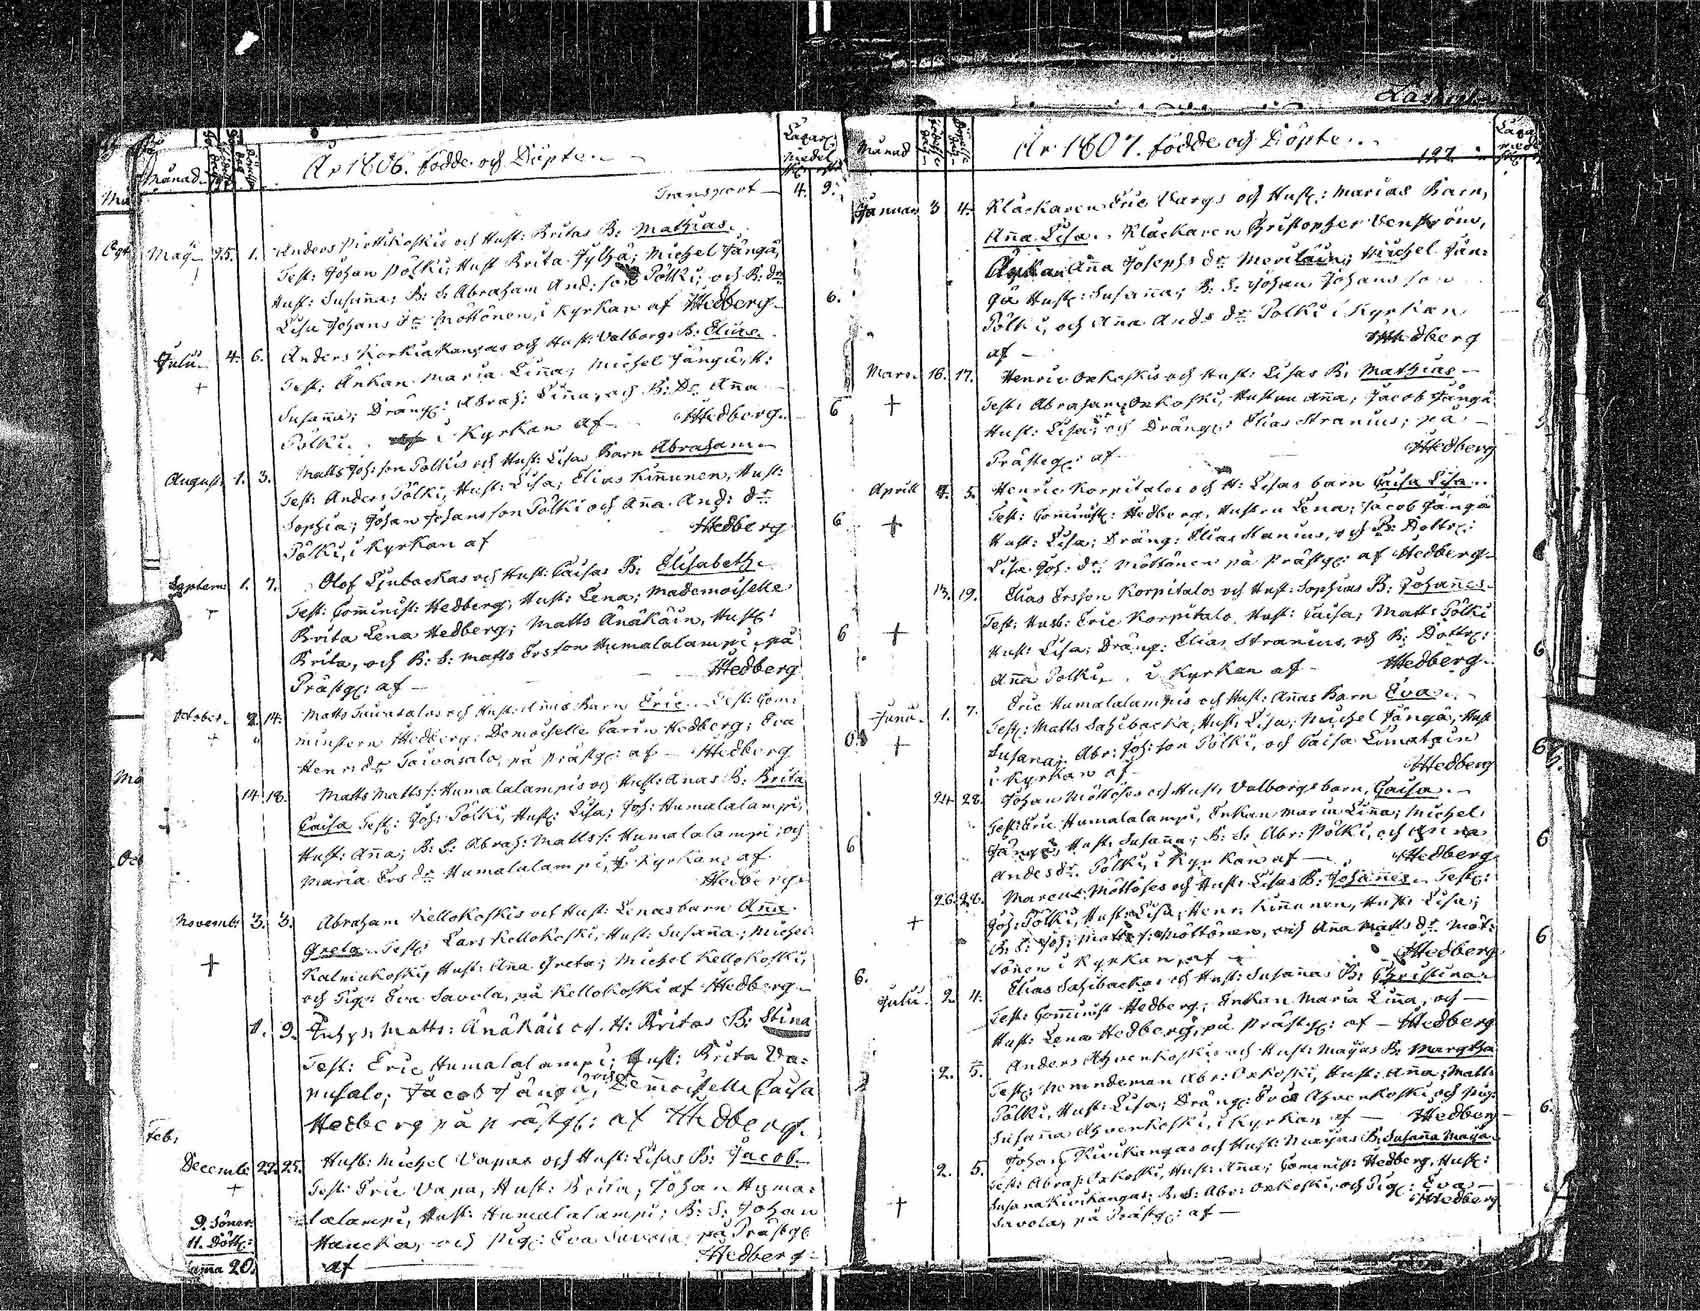 År 1806. födde och Döpte.
Månad
Transport 4. 9.
Maij 25. 1. Anders Pirttikoskis och Hust: Britas B: Mathias.
Test: Johan Pölki, Hust Brita Jylhä; Michel Jångå,
Hust: Susaña; B: S: Abraham And: son Pölki; och B: dr
Lisa Johans dr Möttönen, i Kyrkan af Hedberg 6.
Julii 4. 6. Anders Korkiakangas och Hust: Valborgs B: Elias.
Test: Änkan Maria Liña; Michel Jångå, H:
Susaña; Dräng: Abrah: Liña, och B: Dr Aña
Pölki. i Kyrkan af Hedberg 6
August 1. 3. Matts Joh: son Pölkis och Hust: Lisas Barn Abraham
Test: Anders Pölki, Hust: Lisa; Elias Kiñunen, Hust:
Sophia; Johan Johansson Pölki och Aña And: dr
Pölki, i Kyrkan af Hedberg 6
Septem: 1. 7. Olof Ljubackas och Hust: Caisas B: Elisabeth
Test: Cominist: Hedberg, Hust: Lena; Mademoiselle
Brita Lena Hedberg; Matts Änäkäin, Hust:
Brita, och B: S: Matts Ersson Humalalampi, på
Prästg: af Hedberg 6
October. 14. Matts Taivasalos och Hust: Añas Barn Eric. Test: Com-
ministern Hedberg, Demoiselle Carin Hedberg; Eva
Henr: dr Taivasalo, på prästg: af Hedberg
14. 18. Matts Matts s: Humalalampis och Hust: Anas B: Brita
Caisa Test: Joh: Pölki, Hust: Lisa; Joh: Humalalampi,
Hust: Aña; B: S: Abrah: Matts s: Humalalampi; och
Maria Ers dr Humalalampi, i Kyrkan af
Hedberg 6
Novemb: 3. 3. Abraham Kellokoskis och Hust: Lenas barn Aña
Greta Test: Lars Kellokoski, Hust: Susaña; Michel
Kalmukoski, Hust: Aña Greta; Michel Kellokoski,
och Pig: Eva Savola, på Kellokoski af Hedberg 6.
9. Matts: Änäkäis och H: Britas B: Stina
Test: Eric Humalalampi; Hust: Brita
Jacob Jångå, och Demoiselle Caisa
Hedberg på prästg: af Hedberg.
Decemb: 22. 25. Husb: Michel Vapas och Hust: Lisas B: Jacob
Test: Eric Vapa, Hust: Brita; Johan Huma-
lalampi, Hust: Humalalampi; B: S. Johan
Hancka, och Pig: Eva Savola på Prästg
af Hedberg
9. Söner
11. Dött:
Suma 20.
År 1807. födde och Döpte.
197.
Månad
Januar 3 4. Klåckaren Eric Vargs och Hust: Marias Barn,
Aña Lisa. Klåckaren Christopher Venström,
Änkan Aña Josephs dr Meriläin; Michel Jån-
gå Hust: Susaña; B: S: Johan Johansson
Pölki, och Aña Ands dr Pölki i Kyrkan
af Hedberg
Mars. 16. 17. Henric Oxkoskis och Hust: Lisas B: Mathias
Test: Abraham Oxkoski, Hustru Aña; Jacob Jångå
Hust: Lisa; och Dräng: Elias Stranius; på
Prästg: af Hedberg
Aprill 4. 5. Henric Korpitalos och H: Lisas barn Caisa Lisa.
Test: Cominist: Hedberg, Hustru Lena; Jacob Jångå
Hust: Lisa; Dräng: Elias Stanius, och B: Dottr:
Lisa Joh: dr Möttönen på prästg: af Hedberg
13. 19. Elias Ersson Korpitalos och Hust: Sophias B: Johañes
Test: Husb: Eric Korpitalo, Hust: Caisa; Matts Pölki
Hust: Lisa; Dräng: Elias Stranius, och B: Dottr:
Aña Pölki, i Kyrkan af Hedberg 6
Junii. 1. 7. Eric Humalalampis och Hust: Añas Barn Eva.
Test: Matts Sahibacka, Hust: Lisa; Michel Jångå, Hust
Susana; Abr: Joh: son Pölki, och Caisa Limatain
i Kyrkan af Hedberg 6
24 28. Johan Möttöses och Hust: Valborgs barn, Caisa.
Test: Eric Humalalampi, Enkan Maria Liña; Michel
Jångå, Hust: Susaña; B: S: Abr: Pölki, och Aña
Andes dr Pölki, i Kyrkan af Hedberg 6
26. 28. Marcus Möttöses och Hust: Lisas B: Johañes Test:
Joh: Pölki, Hust: Lisa; Henr: Kiñunen, Hust: Lisa;
B: S: Joh: Matts s: Möttönen, och Aña Matts dr Möt-
tönen i Kyrkan, af Hedberg 6
Julii. 2 4. Elias Sahibackas och Hust: Susañas B: Christina
Test: Cominist Hedberg; Enkan Maria Liña, och
Hust: Lena Hedberg, på Prästg: af Hedberg
2. 5. Anders Ahvenkoskis och Hust: Majas B: Margtha
Test: Nemndeman Abr: Oxkoski, Hust: Aña; Matts
Pölki, Hust: Lisa; Dräng: Eric Ahvenkoski, och pig:
Susaña Ahvenkoski, i Kyrkan af Hedberg 6.
2. 5. Johan Kivikangas och Hust: Majas B: Susaña Maja
Test: Abrah: Oxkoski, Hust: Aña; Cominist: Hedberg, Hust:
Susana Kivikangas; B: S: Abr: Oxkoski, och Pig: Eva
Savola, på Prästg: af Hedberg